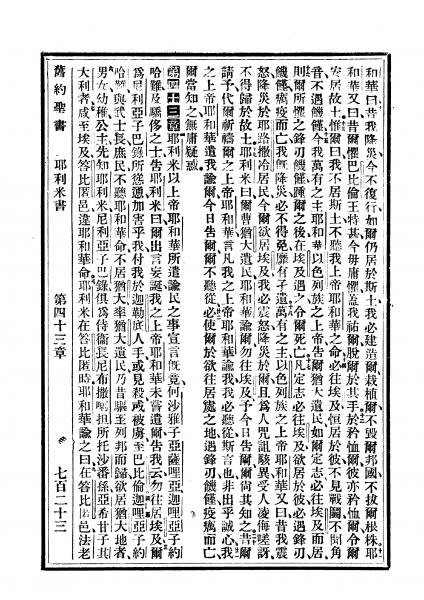 和華曰昔我降災今不復行如爾仍居於斯土我必建造爾栽植爾不毀爾邦國不拔爾根株耶
和華又曰昔爾懼巴比倫王特甚今毋庸懼蓋我祐爾脫爾於其手於矜恤爾彼亦矜恤爾令爾
安居故土惟爾曰我不居斯土不聽我上帝耶和華之命必往埃及恒居於彼不見戰鬬不聞角
音不遇饑饉今我萬有之主耶和華以色列族之上帝告爾猶大遺民如爾定志必往埃及而居
則爾所懼之鋒刃饑饉踵爾之後在埃及遇之令爾死亡凡定志必往埃及欲居於彼必遇鋒刃
饑饉癘疫而亡我旣降災必不得免靡有孑遺萬有之主以色列族之上帝耶和華又曰昔我震
怒降災於耶路撒冷居民今爾欲居埃及我必震怒降災於爾且爲人咒詛駭異受人凌侮嗟訝
不得歸於故土耶利米曰爾曹猶大遺民耶和華諭爾勿往埃及予今日告爾爾尚其知之昔爾
請予代爾祈禱爾之上帝耶和華言凡我之上帝耶和華諭我我必聽從斯言也非出乎誠心我
之上帝耶和華遣我諭爾今日告爾爾不聽從必使爾於欲往居處之地遇鋒刃饑饉癘疫而亡
爾當知之無庸疑惑
第四十三章 耶利米以上帝耶和華所遣諭民之事宣言旣竟何沙雅子亞薩哩亞迦哩亞子約
哈難及驕侈之士告耶利米曰爾出言妄誕我之上帝耶和華未嘗遣爾告我云勿往居埃及爾
爲尼利亞子巴錄所慫慂加害乎我付我於迦勒底人手或見殺或被虜至巴比倫迦哩亞子約
哈難與武士長庶民不聽耶和華命不居猶大率猶大遺民乃昔驅至列邦而歸欲居猶大地者
男女幼稚公主先知耶利米尼利亞子巴錄俱爲侍衞長尼布撒喇坦所托沙番孫亞希甘子其
大利者咸至埃及答比匿邑違耶和華命耶利米在答比匿時耶和華諭之曰在答比匿邑法老
舊約聖書 耶利米書 第四十三章 七百二十三